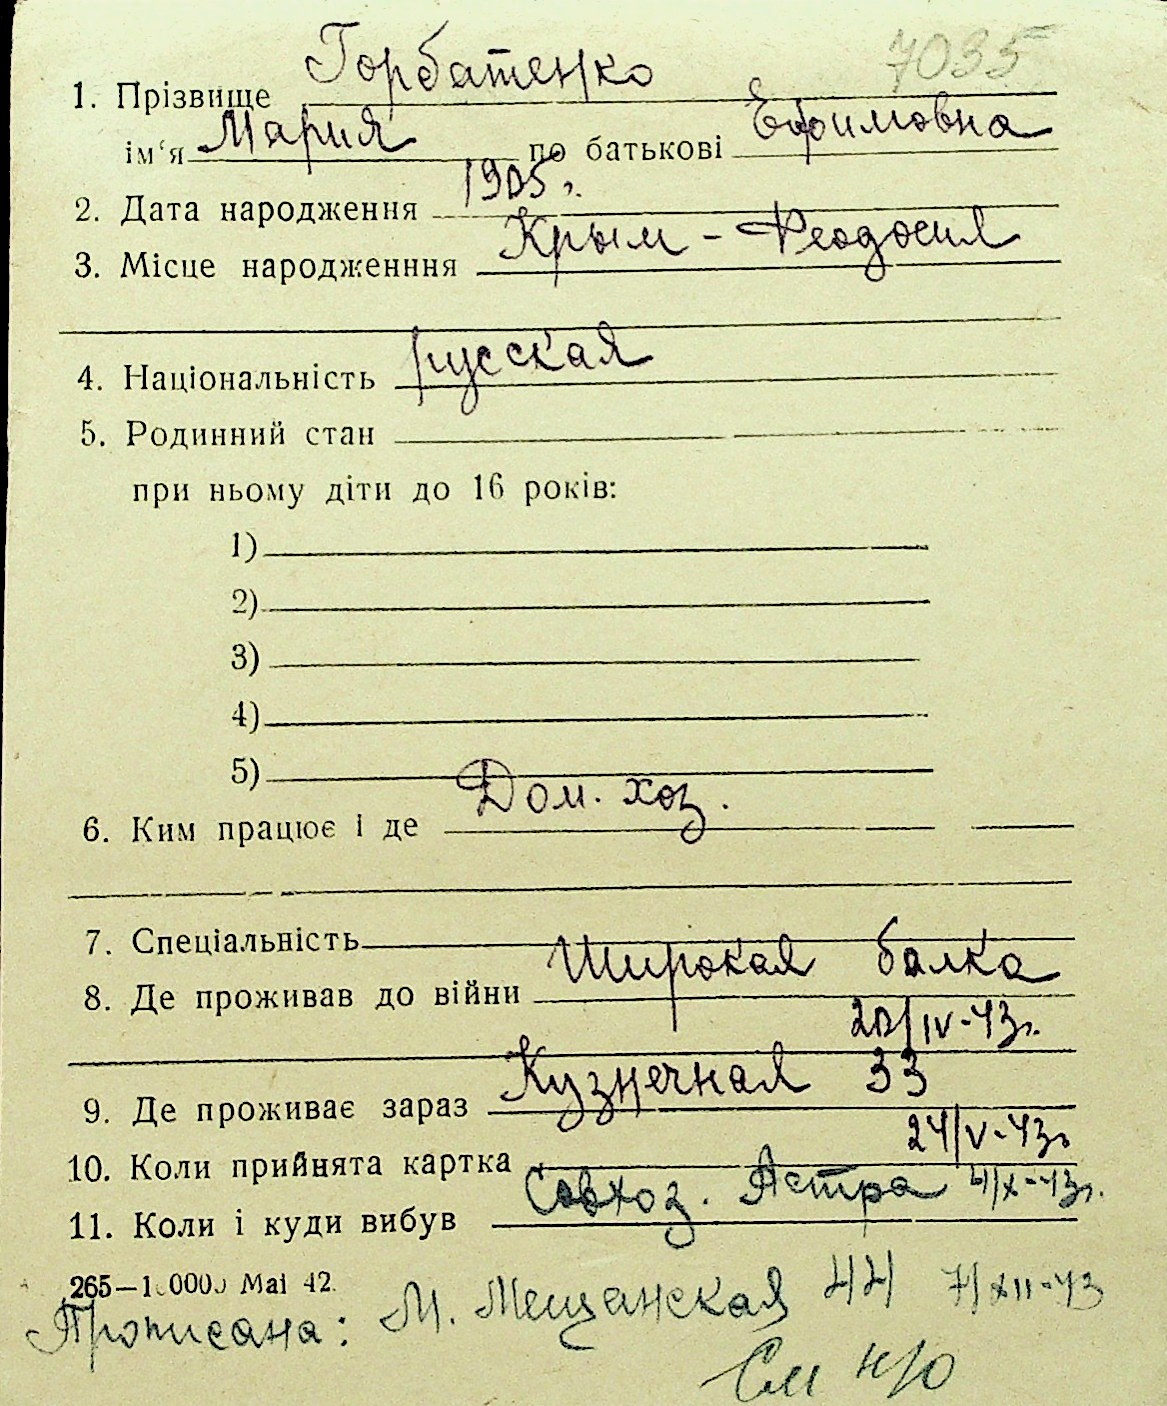 7035
1. Прізвище Горбатенко
ім'я Мария по батькові Ефимовна
2. Дата народження 1905 г.
3. Місце народженння Крым - Феодосия
4. Національність русская
5. Родинний стан
при ньому діти до 16 років:
1)
2)
3)
4)
5)
6. Ким працює і де Дом. хоз.
7. Спеціальність
8. Де проживав до війни Широкая балка
20/IV-43г.
9. Де проживає зараз Кузнечная 33
10. Коли прийнята картка 24/V-43г
11. Коли і куди вибув Совхоз. Астра 4/X-43г.
Mai 42
Прописана: М. Мещанская 44 7/XII-43
См н/о